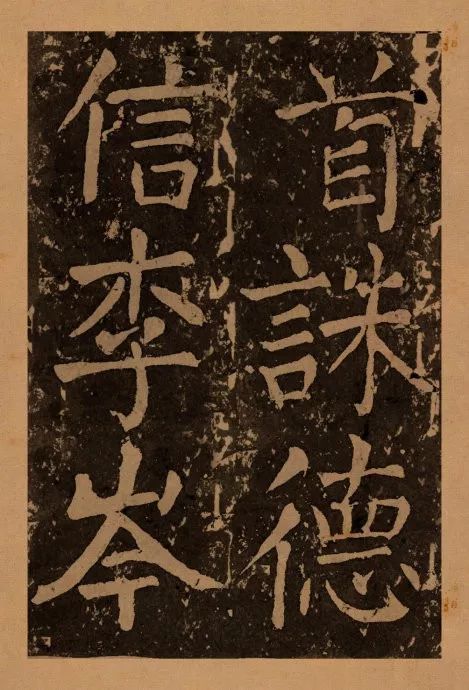 首誅德
信李岑